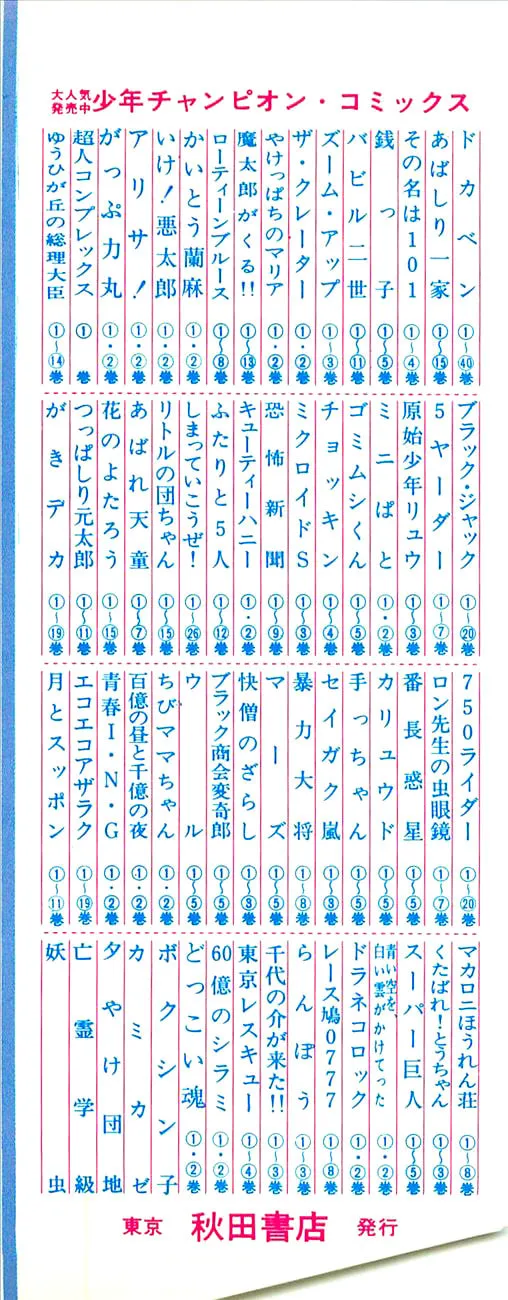 大人気発売中 少年チャンピオン・コミックス
ドカベン ①〜㊵巻
あばしり一家 ①〜⑮巻
その名は101 ①〜④巻
銭っ子 ①〜⑤巻
バビル二世 ①〜⑪巻
ズーム・アップ ①〜③巻
ザ・クレーター ①・②巻
やけっぱちのマリア ①・②巻
魔太郎がくる!! ①〜⑬巻
ローティーンブルース ①〜⑧巻
かいとう蘭麻 ①・②巻
いけ!悪太郎 ①・②巻
アリサ! ①・②巻
がっぷ力丸 ①・②巻
超人コンプレックス ① 巻
ゆうひが丘の総理大臣 ①〜⑭巻
ブラック・ジャック ①〜⑳巻
5ヤーダー ①〜⑦巻
原始少年リュウ ①〜③巻
ミニぱと ①・②巻
ゴミムシくん ①〜⑤巻
チョッキン ①〜④巻
ミクロイドS ①〜③巻
恐怖新聞 ①〜⑨巻
キューティーハニー ①・②巻
ふたりと5人 ①〜⑫巻
しまっていこうぜ! ①〜㉖巻
リトルの団ちゃん ①〜⑮巻
あばれ天童 ①〜⑦巻
花のよたろう ①〜⑮巻
つっぱしり元太郎 ①〜⑪巻
がきデカ ①〜⑲巻
750ライダー ①〜⑳巻
ロン先生の虫眼鏡 ①〜⑦巻
番長惑星 ①〜⑤巻
カリュウド ①〜⑤巻
手っちゃん ①〜⑤巻
セイガク嵐 ①〜③巻
暴力大将 ①〜⑧巻
マーズ ①〜⑤巻
快僧のざらし ①〜③巻
ブラック商会変奇郎 ①〜⑤巻
ウル ①〜⑤巻
ちびママちゃん ①・②巻
百億の昼と千億の夜 ①・②巻
青春I・N・G ①・②巻
エコエコアザラク ①〜⑲巻
月とスッポン ①〜⑪巻
マカロニほうれん荘 ①〜⑧巻
くたばれ!とうちゃん ①〜③巻
スーパー巨人 ①〜⑤巻
青い空を、白い雲がかけてった ①・②巻
ドラネコロック ①・②巻
レース鳩0777 ①〜⑧巻
らんぽう ①〜③巻
千代の介が来た!! ①〜③巻
東京レスキュー ①〜④巻
60億のシラミ ①・②巻
どっこい魂 ①・②巻
ボクシン子
カミカゼ
夕やけ団地
亡霊学級
妖虫
東京 秋田書店 発行